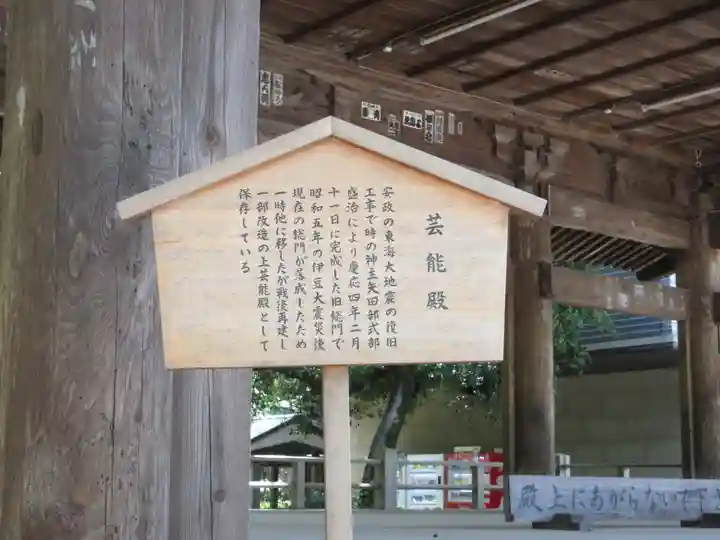 芸能殿
安政の東海大地震の復旧
工事で時の神主矢田部式部
盛治により慶応四年二月
十一日に完成した旧総門で
昭和五年の伊豆大震災後
現在の総門が落成したため
一時他に移したが戦後再建し
一部改造の上芸能殿として
保存している
殿上にあがらない